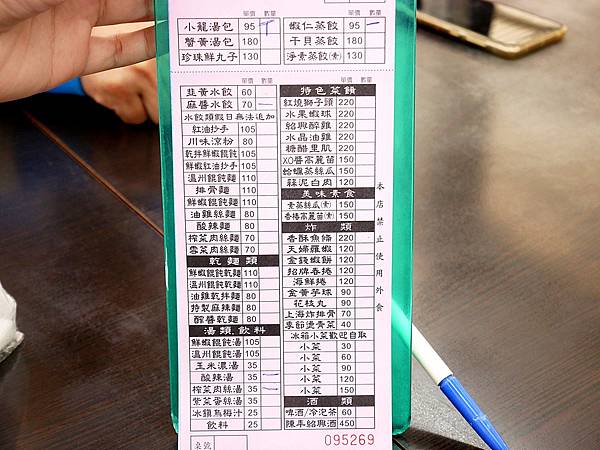 單價 數量 單價 數量
小籠湯包 95 蝦仁蒸餃 95
蟹黃湯包 180 干貝蒸餃 180
珍珠鮮丸子 130 淨素蒸餃(素) 130
單價 數量
韭黃水餃 60
麻醬水餃 70
水餃類假日無法追加
紅油抄手 105
川味涼粉 80
乾拌鮮蝦餛飩 105
鮮蝦紅油抄手 105
溫州餛飩麵 110
排骨麵 110
鮮蝦餛飩麵 110
油雞絲麵 80
酸辣麵 80
榨菜肉絲麵 70
雪菜肉絲麵 70
乾麵類
鮮蝦餛飩乾麵 110
溫州餛飩乾麵 110
油雞乾拌麵 80
特製麻辣麵 80
醡醬乾麵 80
湯類.飲料
鮮蝦餛飩湯 105
溫州餛飩湯 105
玉米濃湯 35
酸辣湯 35
榨菜肉絲湯 35
紫菜蛋絲湯 35
冰鎮烏梅汁 25
飲料 25
桌號
單價 數量
特色菜餚
紅燒獅子頭 220
水果蝦球 220
紹興醉雞 220
水晶油雞 220
糖醋里肌 220
XO醬高麗苗 150
蛤蠣蒸絲瓜 150
蒜泥白肉 120
美味素食
素蒸絲瓜(素) 150
香椿高麗苗(素) 150
炸類
香酥魚條 220
天婦羅蝦 120
金錢蝦餅 120
招牌春捲 120
海鮮捲 120
金黃芋球 90
花枝丸 90
上海炸排骨 70
季節燙青菜 40
冰箱小菜歡迎自取
小菜 30
小菜 60
小菜 90
小菜 120
小菜 150
酒類
啤酒/冷泡茶 60
陳年紹興酒 450
095269
本店禁止使用外食